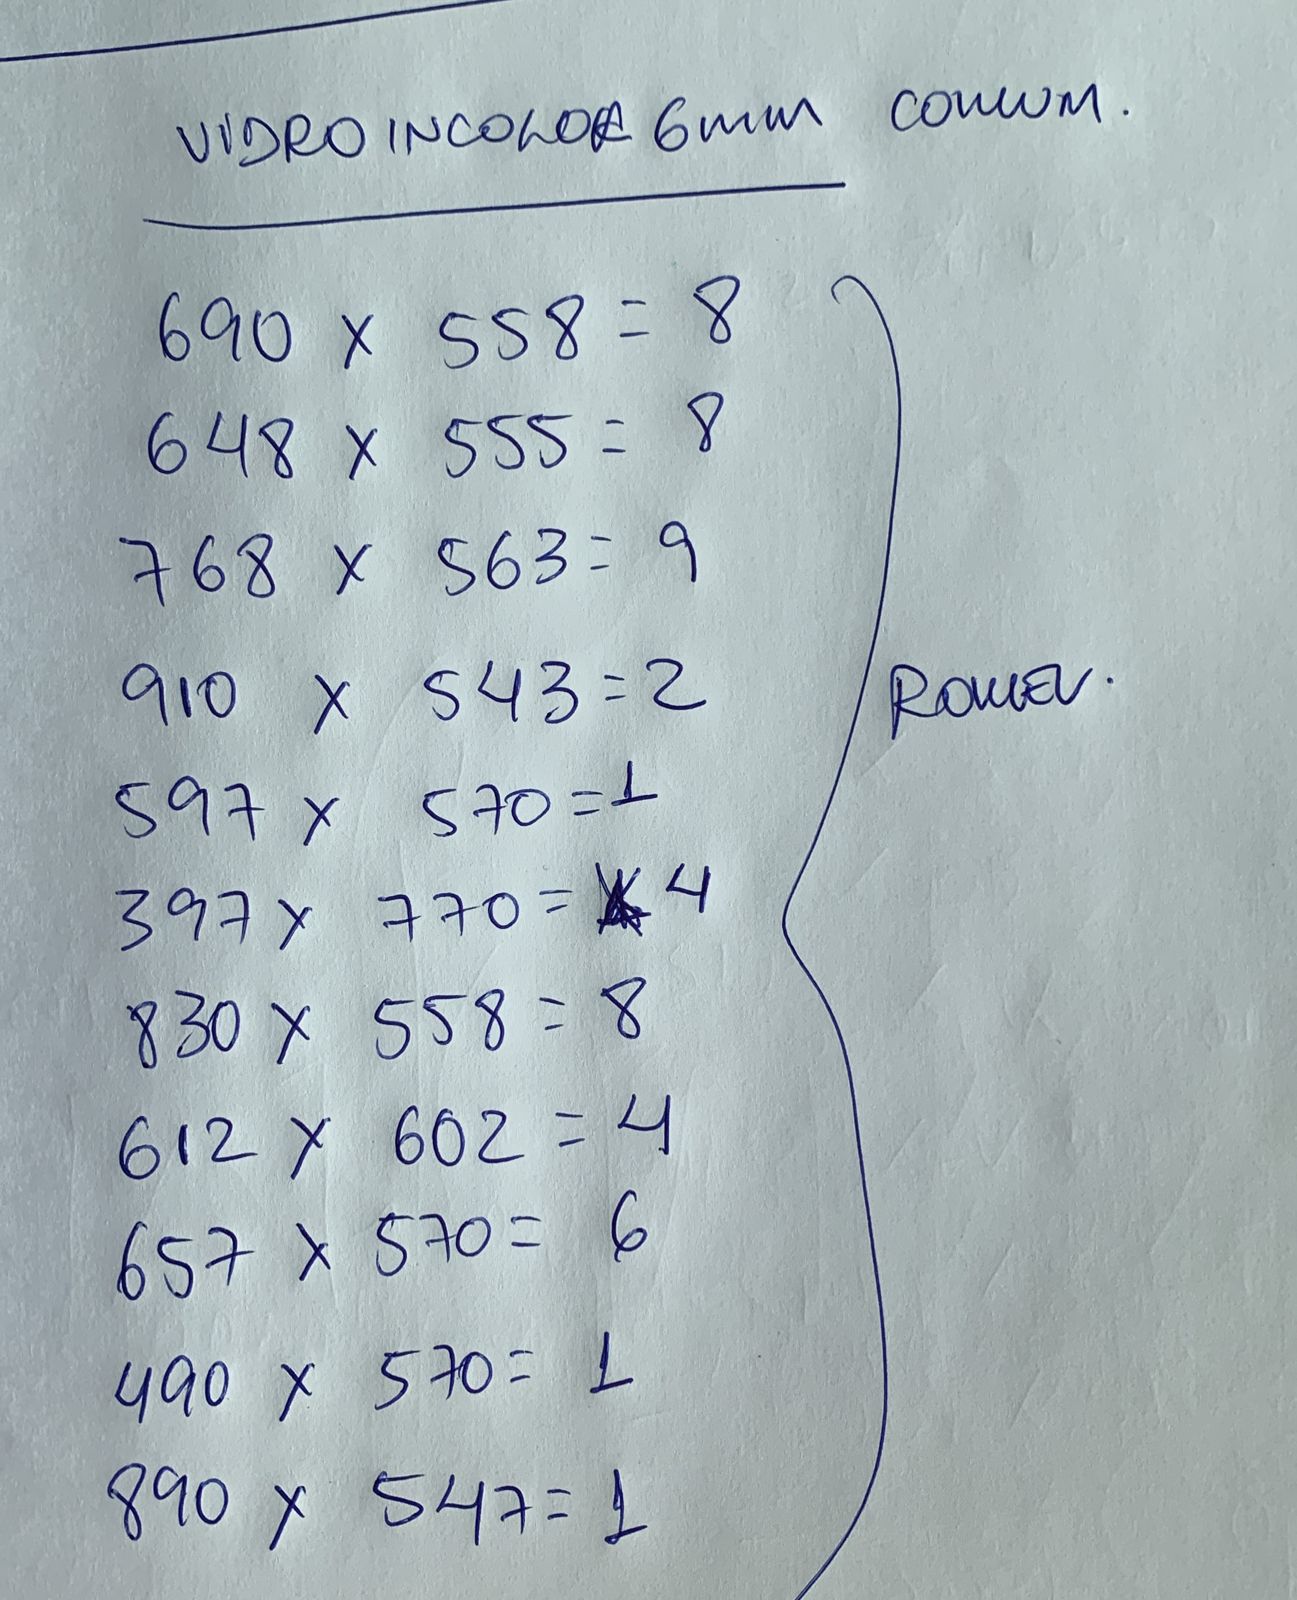 VIDRO INCOLOR 6mm comum.
690 x 558 = 8
648 x 555 = 8
768 x 563 = 9
910 x 543 = 2
597 x 570 = 1
397 x 770 = 4
830 x 558 = 8
612 x 602 = 4
657 x 570 = 6
490 x 570 = 1
890 x 547 = 1